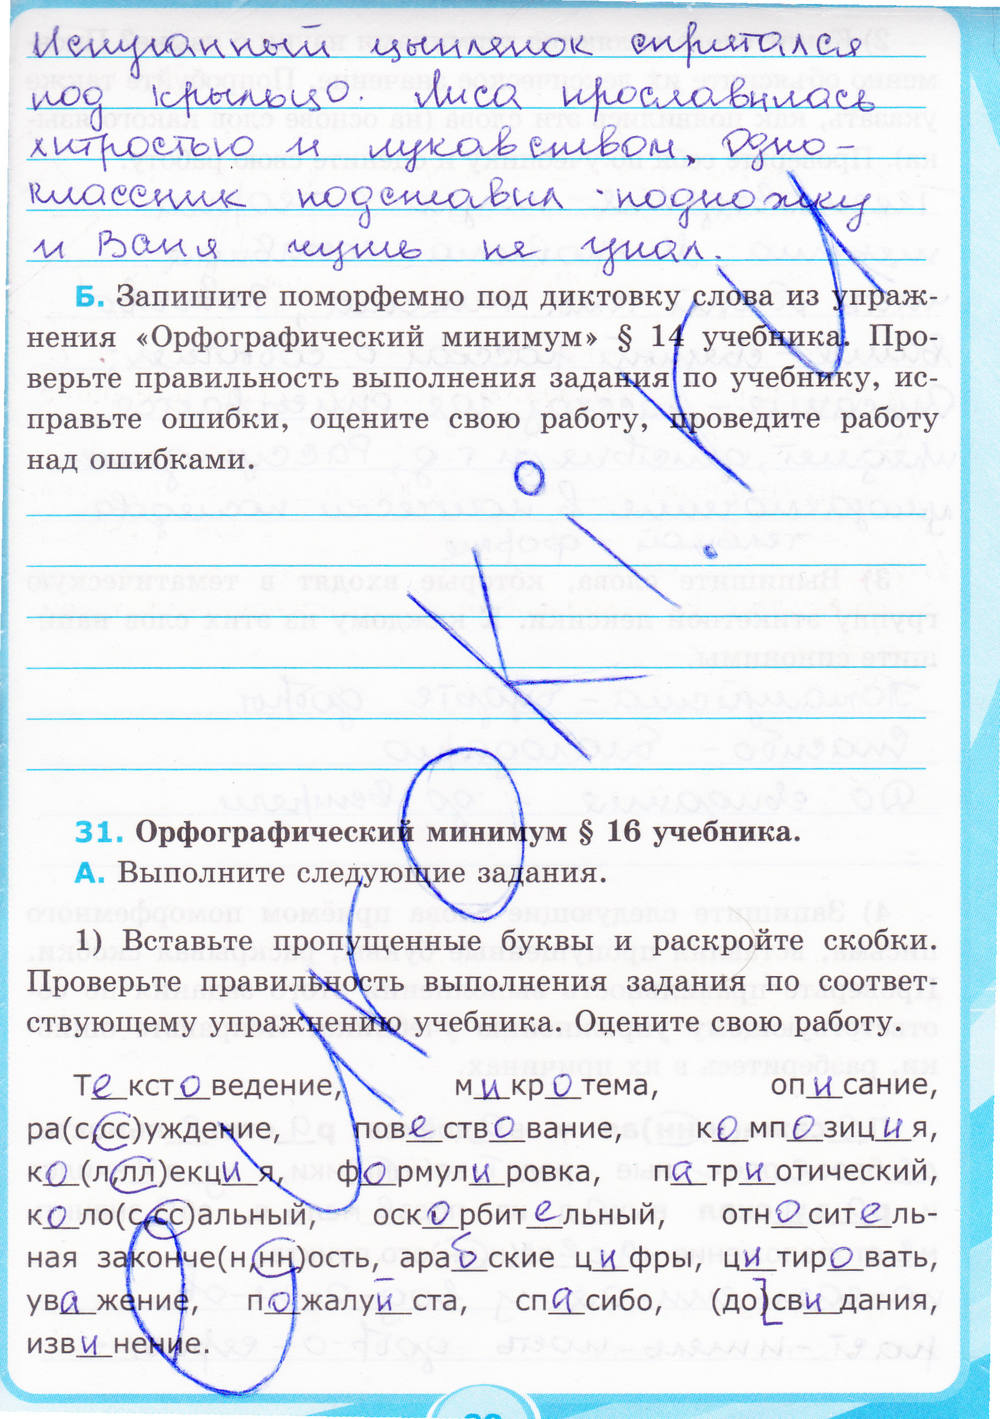 Испуганный цыпленок спрятался
под крыльцо. Лиса прославилась
хитростью и лукавством. Одно-
классник подставил подножку
и Ваня чуть не упал.
Б. Запишите поморфемно под диктовку слова из упраж-
нения «Орфографический минимум» § 14 учебника. Про-
верьте правильность выполнения задания по учебнику, ис-
правьте ошибки, оцените свою работу, проведите работу
над ошибками.
31. Орфографический минимум § 16 учебника.
А. Выполните следующие задания.
1) Вставьте пропущенные буквы и раскройте скобки.
Проверьте правильность выполнения задания по соответ-
ствующему упражнению учебника. Оцените свою работу.
Т_е_кст_о_ведение, м_и_кр_о_тема, оп_и_сание,
ра(с,сс)уждение, пов_е_ств_о_вание, к_о_мп_о_зиц_и_я,
к_о_(л,лл)екц_и_я, ф_о_рмул_и_ровка, п_а_тр_и_отический,
к_о_ло(с,сс)альный, оск_о_рбит_е_льный, отн_о_сит_е_ль-
ная законче(н,нн)ость, ара_б_ские ц_и_фры, ц_и_тир_о_вать,
ув_а_жение, п_о_жалу_й_ста, сп_а_сибо, (до)св_и_дания,
изв_и_нение.